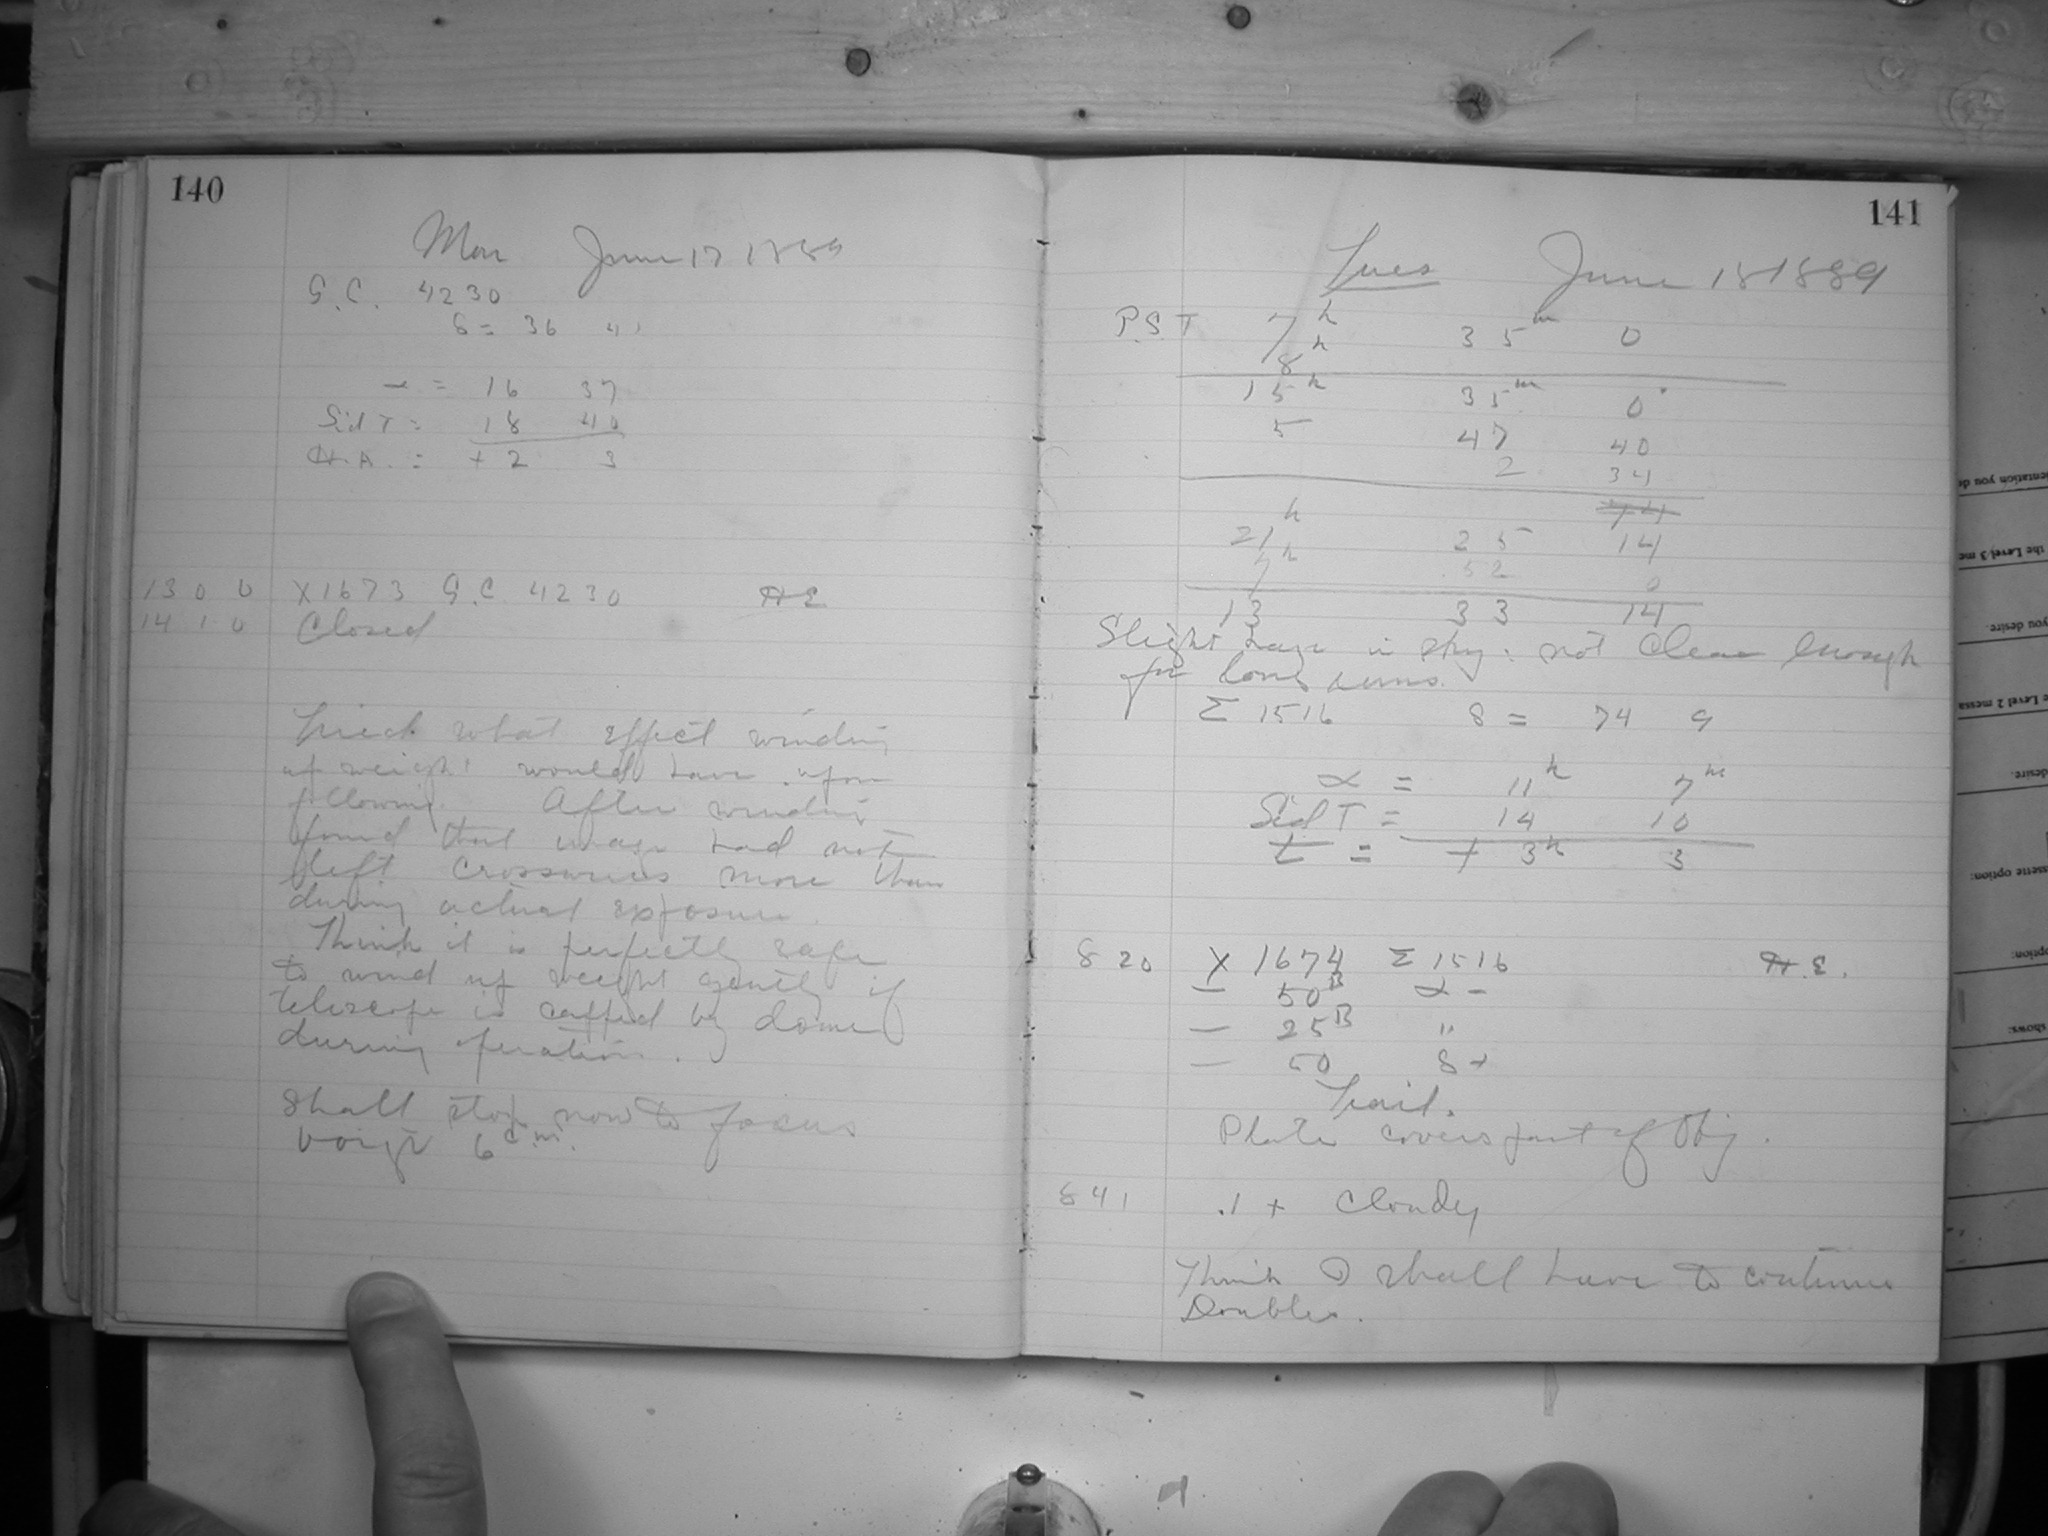 140
Mon June 17 1889
G.C. 4230
δ = 36 41
α = 16 37
Sid T = 18 40
H.A. = + 2 3
13 0 0 X1673 G.C. 4230 H E
14 1 0 Closed
Tried what effect winding
up weight would have upon
following. After winding
found that image had not
left crosswires more than
during actual exposure.
Think it is perfectly safe
to wind up weight gently if
telescope is capped by dome
during operation.
Shall stop now to focus
Voigt 6 a.m.
141
Tues June 18 1889
P.S.T 7h 35m 0
8h
15h 35m 0
5 47 40
2 34
21h 25 14
7h 52 0
13 33 14
Slight haze in sky: not clear enough
for long
Σ 1516 δ = 74 9
α = 11h 7m
Sid T = 14 10
t = + 3h 3
8 20 X 1674 Σ 1516 H.E.
— 50B α -
— 25B "
— 50 δ +
Trail.
Plate covers part of Obj.
8 41 .1 + Cloudy
Think I shall have to continue
Doubles.